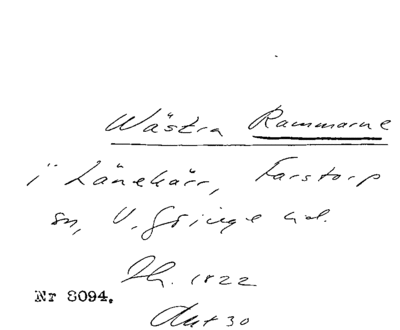 Wästra Rammarne
i Länekärr, Farstorp
sn, V. Göinge hd.
Lh. 1822
Nr 8094.
Akt 30